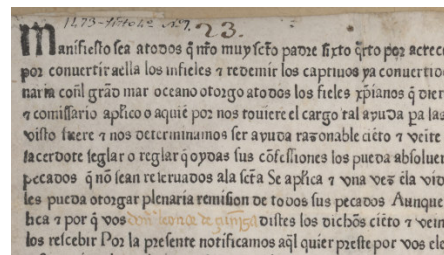 1473 - 23.
Manifiesto sea atodos q̄ nr̄o muy sctō padre sixto qr̄to por acrece
por conuertir aella los infieles ⁊ redemir los captiuos ya conuertido
naria con̄l grād mar oceano otorgo atodos los fieles xp̄ianos q̄ dier
⁊ comissario ap̄lico o aquiē por nos touiere el cargo tal ayuda pa las
visto fuere ⁊ nos determinamos ser ayuda razonable ciēto ⁊ veite
sacerdote seglar o reglar q̄ oydas sus cōfessiones los pueda absoluer
pecados q̄ nō sean reseruados ala sctā Se ap̄lica ⁊ vna vez ēla vid
les pueda otorgar plenaria remision de todos sus pecados Aunque
lica ⁊ por q̄ vos distes los dichōs ciēto ⁊ vein
los rescebir Por la presente notificamos aq̄l quier preste por vos ele